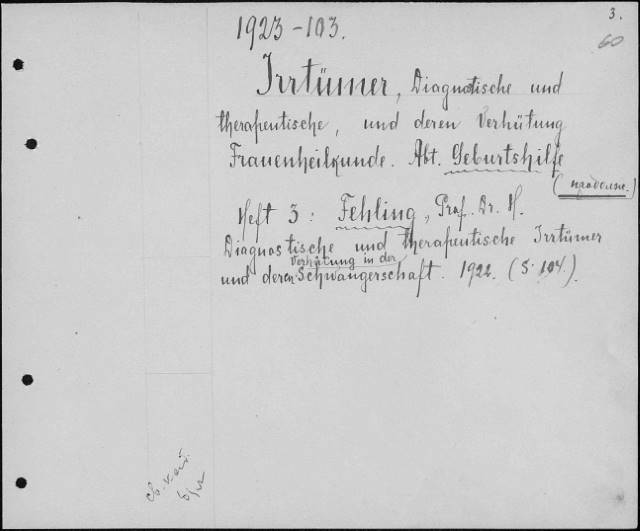 3.
1923-103.
60
Irrtümer, Diagnostische und
therapeutische, und deren Verhütung
Frauenheilkunde. Abt. Geburtshilfe
Heft 3: Fehling, Prof. Dr. H.
Diagnostische und therapeutische Irrtümer
Verhütung in der
und deren Schwangerschaft. 1922. (S. 104.).